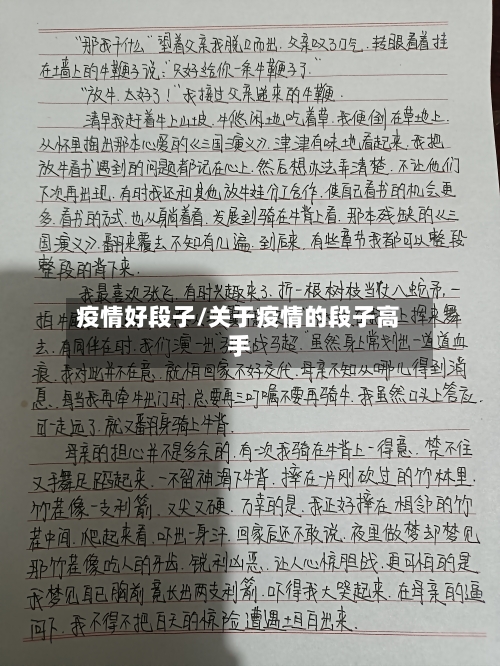 “那我干什么”望着父亲我脱口而出.父亲叹了口气.转眼看着挂
在土墙上的牛鞭子说:“只好给你一条牛鞭子了.”
“放牛.太好了!”我接过父亲递来的牛鞭.
清早我赶着牛上山坡.牛悠闲地吃着草.我便倒在草地上.
从怀里掏出那本心爱的《三国演义》.津津有味地看起来.我把
放牛看书遇到的问题都记在心上.然后想办法弄清楚.不让他们
下次再出现.有时我还和其他放牛娃分工合作.使自己看书的机会更
多.看书的方式.也从躺着看.发展到骑在牛背上看.那本残缺的《三
国演义》.翻来覆去不知有几遍.到后来.有些章节我都可以整段
整段的背下来.
我最喜欢张飞.有时兴趣来了.折一根树枝当丈八蛇矛.一
拍牛
疫情好段子/关于疫情的段子高
手
去.有同伴在时.我们演一出 战马超.虽然身上常划出一道道血
痕.我对此并不在意.就怕回家不好交代.母亲不知从哪儿得到消
息.每当我再牵牛出门时.总要再三叮嘱不要再骑牛.我虽然口头上答应.
可一走远了.就又翻身骑上牛背.
母亲的担心并不是多余的.有一次我骑在牛背上一得意.禁不住
又手舞足蹈起来.一不留神滑下牛背.摔在一片刚砍过的竹林里.
竹茬像一支利箭.又尖又硬.万幸的是.我正好摔在相邻的竹
茬中间.爬起来看.吓出一身汗.回家后还不敢说.夜里做梦却梦见
那竹茬像吃人的牙齿.锐利凶恶.让人心惊胆战.更可怕的是
我梦见自己胸前竟长出两支利箭.吓得我大哭起来.在母亲的逼
问下.我不得不把白天的惊险遭遇一五一十 出来.